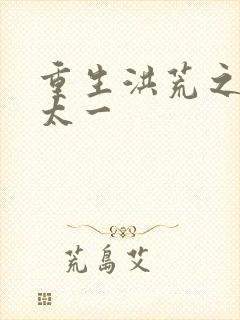 重生洪荒之
太一
荒岛艾